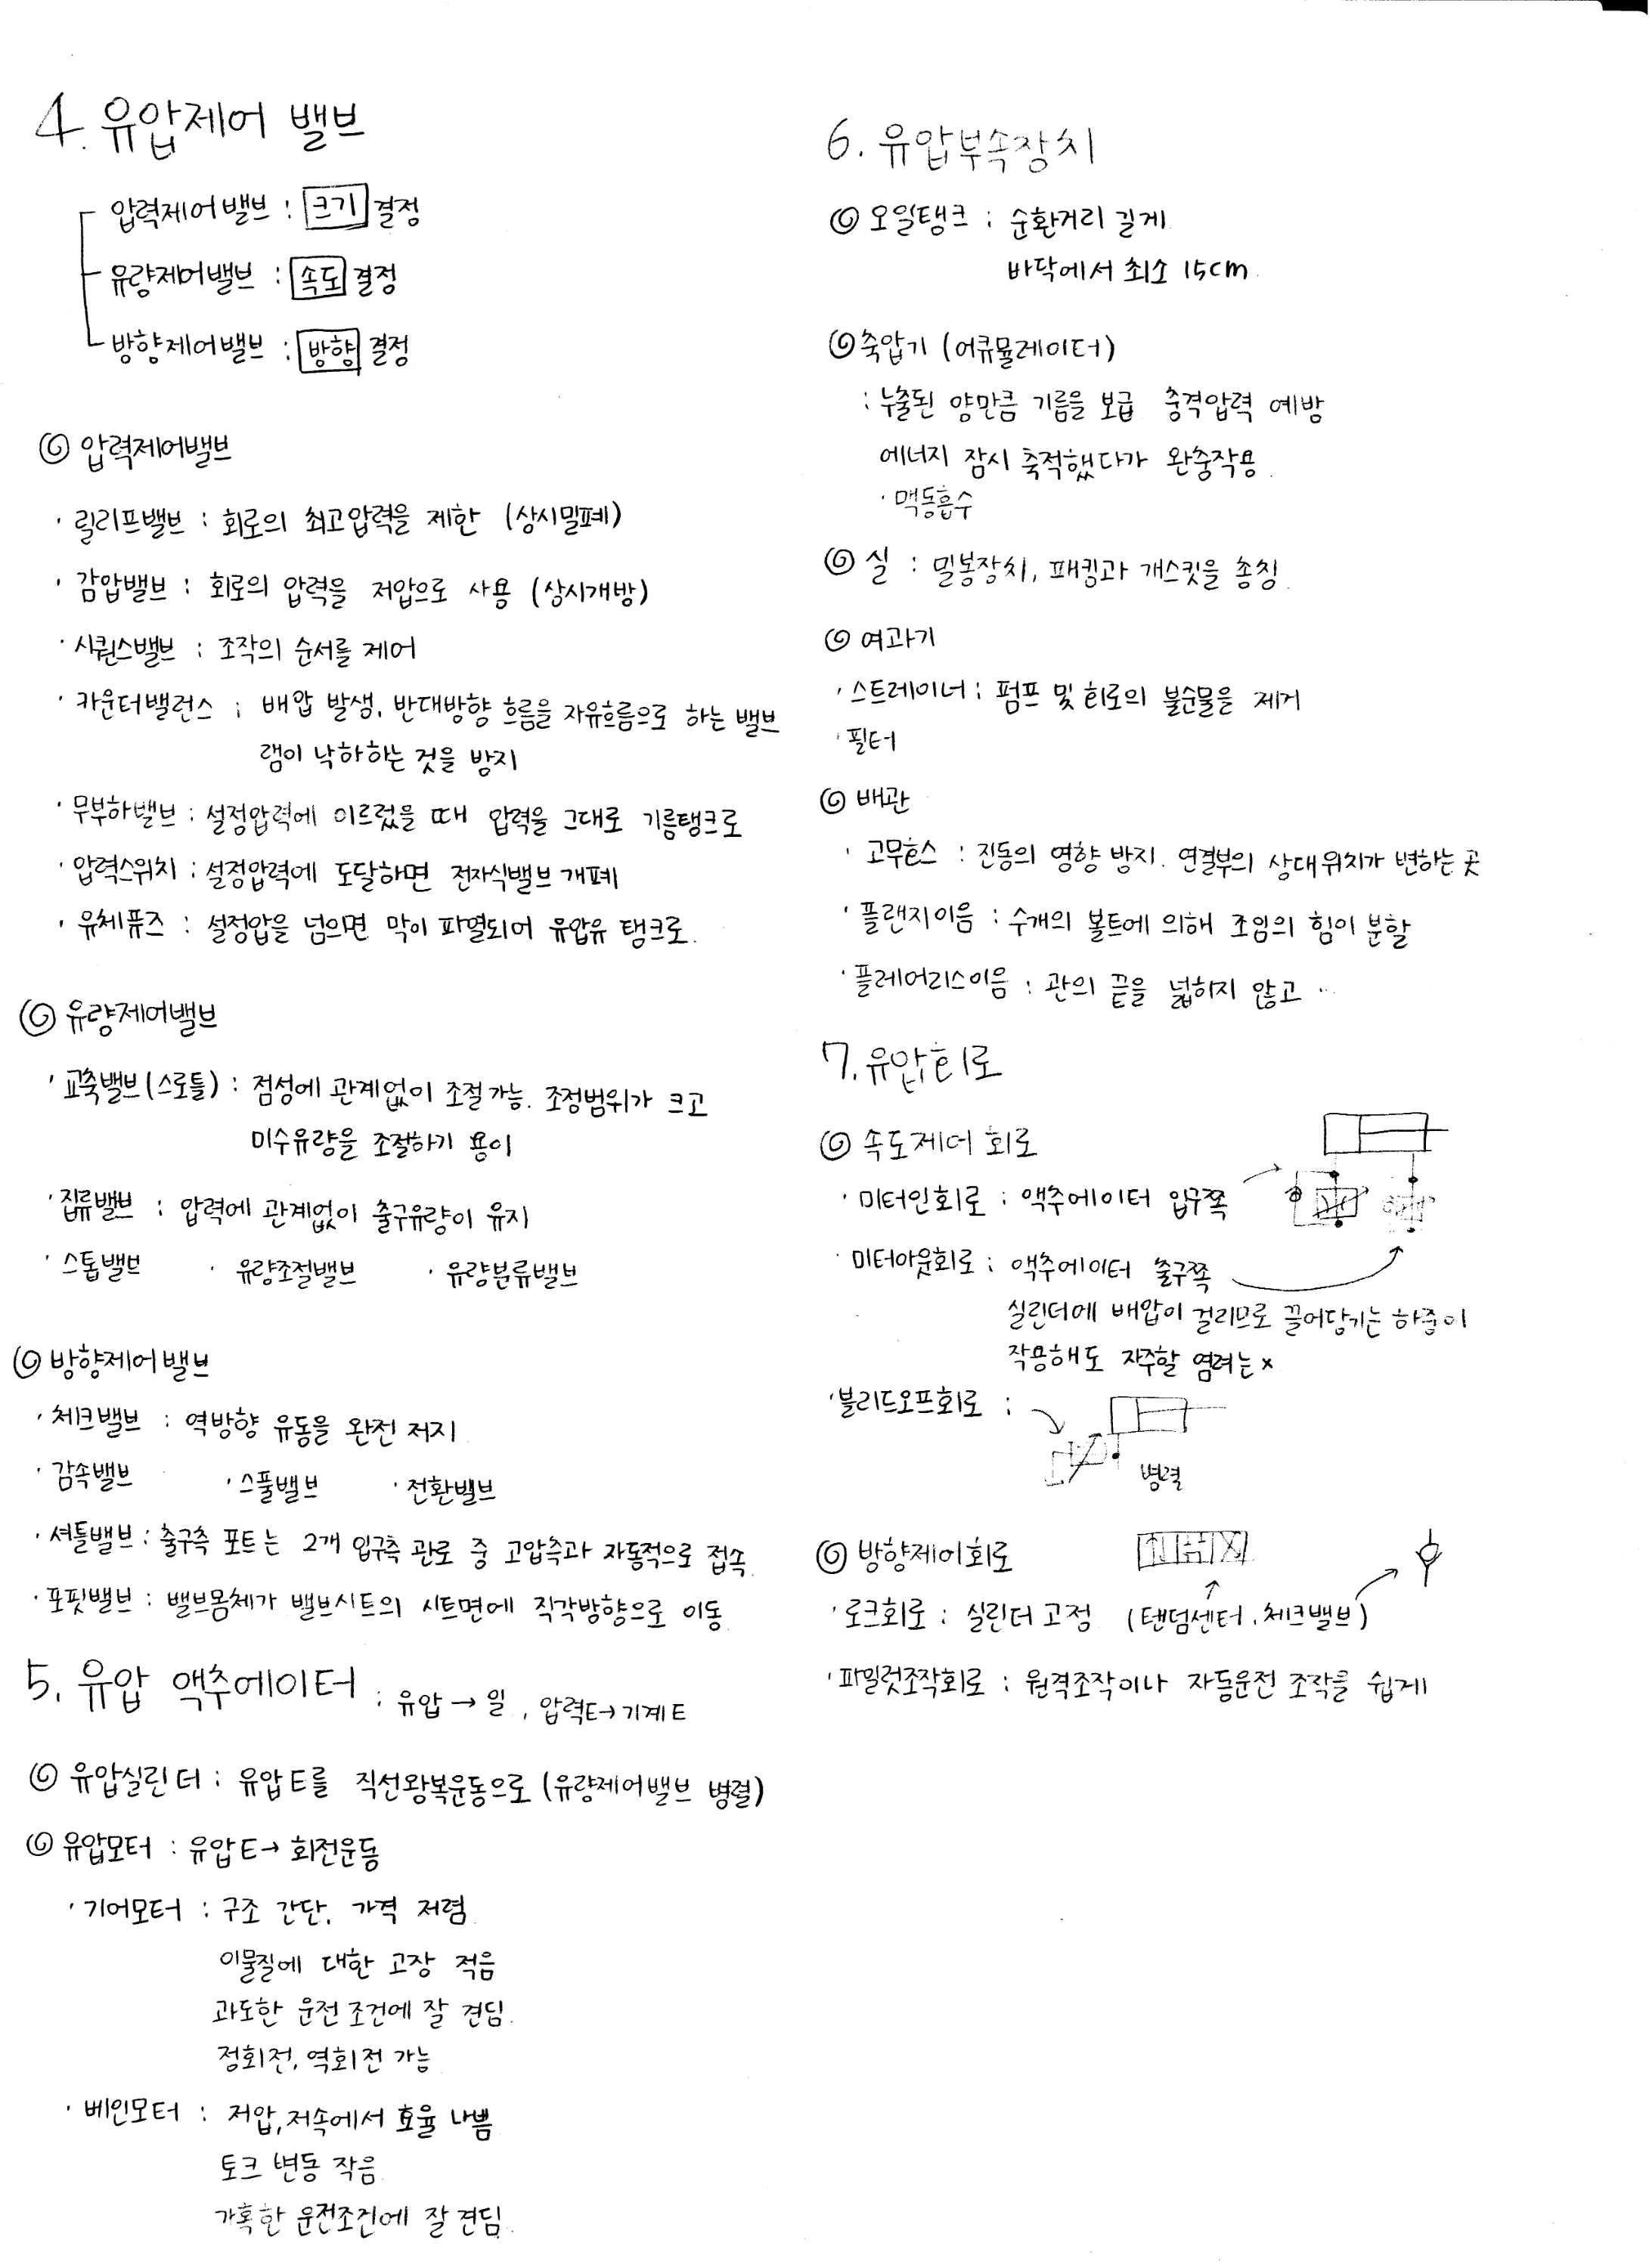 4. 유압제어 밸브
압력제어밸브 : 크기 결정
유량제어밸브 : 속도 결정
방향제어밸브 : 방향 결정
◎ 압력제어밸브
· 릴리프밸브 : 회로의 최고압력을 제한 (상시밀폐)
· 감압밸브 : 회로의 압력을 저압으로 사용 (상시개방)
· 시퀀스밸브 : 조작의 순서를 제어
· 카운터밸런스 : 배압 발생, 반대방향 흐름을 자유흐름으로 하는 밸브
램이 낙하하는 것을 방지
· 무부하밸브 : 설정압력에 이르렀을 때 압력을 그대로 기름탱크로
· 압력스위치 : 설정압력에 도달하면 전자식밸브 개폐
· 유체퓨즈 : 설정압을 넘으면 막이 파열되어 유압유 탱크로.
◎ 유량제어밸브
· 교축밸브(스로틀) : 점성에 관계없이 조절 가능. 조정범위가 크고
미수유량을 조절하기 용이
· 집류밸브 : 압력에 관계없이 출구유량이 유지
· 스톱밸브 · 유량조절밸브 · 유량분류밸브
◎ 방향제어밸브
· 체크밸브 : 역방향 유동을 완전 저지
· 감속밸브 · 스풀밸브 · 전환밸브
· 셔틀밸브 : 출구측 포트는 2개 입구측 관로 중 고압측과 자동적으로 접속.
· 포핏밸브 : 밸브몸체가 밸브시트의 시트면에 직각방향으로 이동
5. 유압 액추에이터 : 유압 → 일, 압력E→기계E
◎ 유압실린더 : 유압E를 직선왕복운동으로 (유량제어밸브 병렬)
◎ 유압모터 : 유압E→ 회전운동
· 기어모터 : 구조 간단, 가격 저렴
이물질에 대한 고장 적음
과도한 운전 조건에 잘 견딤.
정회전, 역회전 가능
· 베인모터 : 저압, 저속에서 효율 나쁨
토크 변동 작음
가혹한 운전조건에 잘 견딤.
6. 유압부속장치
◎ 오일탱크 : 순환거리 길게
바닥에서 최소 15cm
◎ 축압기 (어큐뮬레이터)
: 누출된 양만큼 기름을 보급 충격압력 예방
에너지 잠시 축적했다가 완충작용
· 맥동흡수
◎ 실 : 밀봉장치, 패킹과 개스킷을 총칭
◎ 여과기
· 스트레이너 : 펌프 및 회로의 불순물을 제거
· 필터
◎ 배관
· 고무호스 : 진동의 영향 방지. 연결부의 상대위치가 변하는 곳
· 플랜지이음 : 수개의 볼트에 의해 조임의 힘이 분할
· 플레어리스이음 : 관의 끝을 넓히지 않고 ...
7. 유압회로
◎ 속도제어 회로
· 미터인회로 : 액추에이터 입구쪽
· 미터아웃회로 : 액추에이터 출구쪽
실린더에 배압이 걸리므로 끌어당기는 하중이
작용해도 자주할 염려는 x
· 블리드오프회로 :
병렬
◎ 방향제어회로
· 로크회로 : 실린더 고정 (탠덤센터, 체크밸브)
· 파일럿조작회로 : 원격조작이나 자동운전 조작을 쉽게